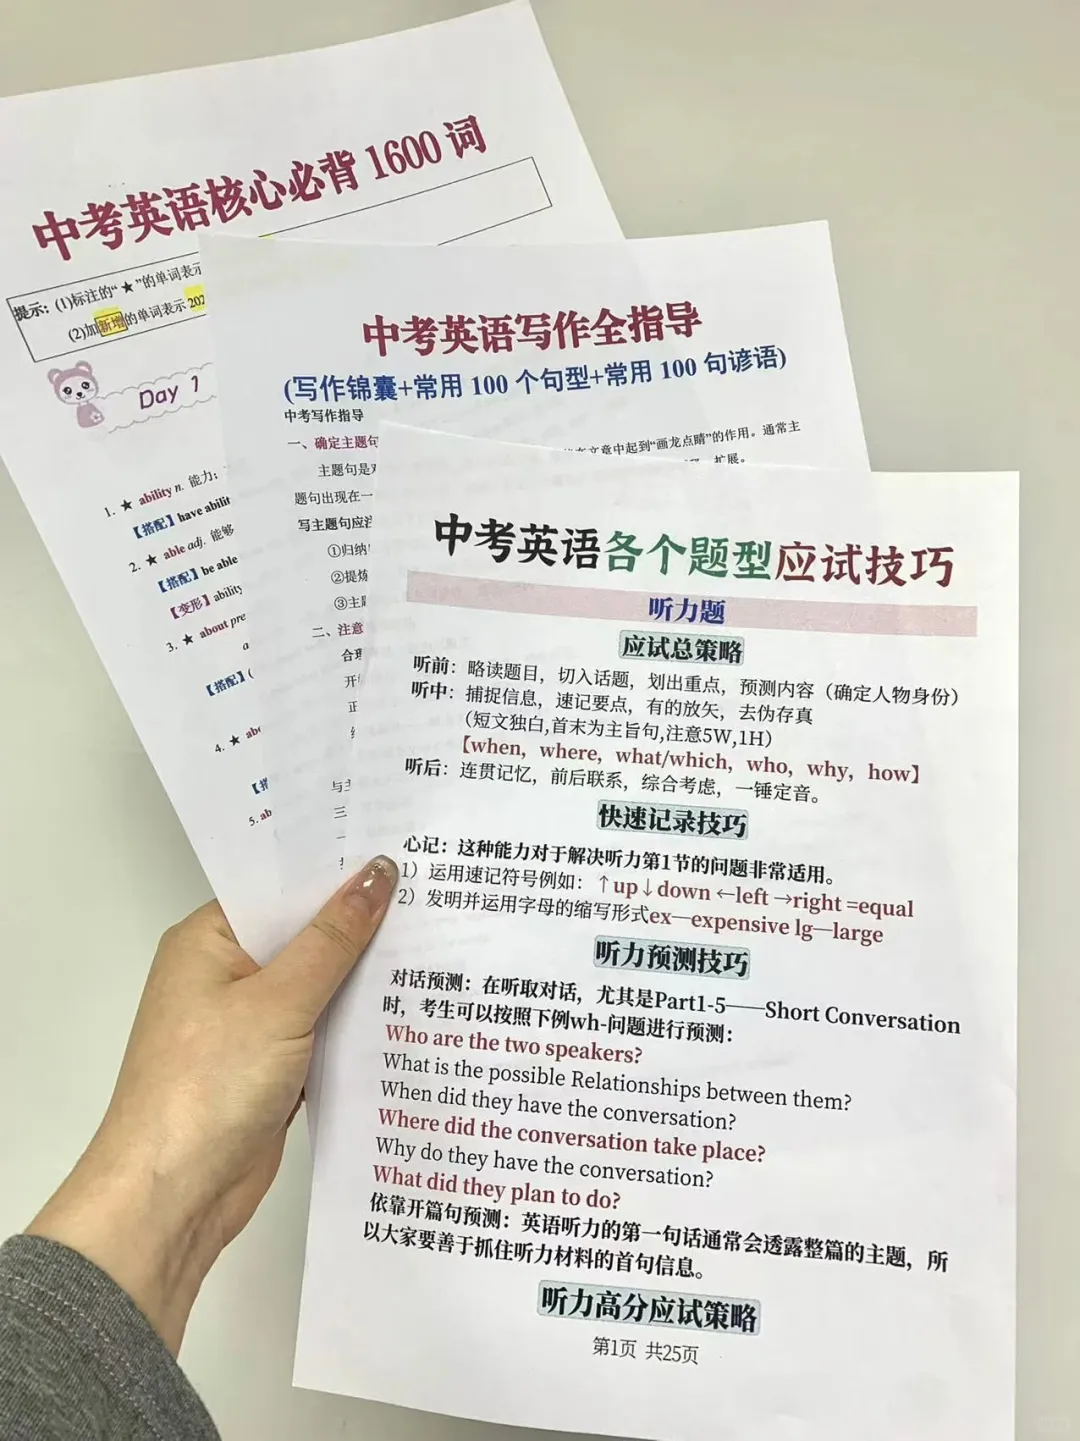 中考英语核心必背 1600 词
提示：(1)标注的“ ★ ”的单词表示
(2)加新增的单词表示 202
Day 1
1. ★ ability n. 能力；
【搭配】have abilit
2. ★ able adj. 能够
【搭配】be able
【变形】ability
3. ★ about pre
a
【搭配】(
4. ★ abo
【搭
5. ab
中考英语写作全指导
(写作锦囊+常用 100 个句型+常用 100 句谚语)
中考写作指导
一、确定主题句
在文章中起到“画龙点睛”的作用。通常主
主题句是对
扩展。
题句出现在一
写主题句应注
①归纳
②提炼
③主题
二、注意
合理
开
正
与主
三
中考英语各个题型应试技巧
听力题
应试总策略
听前：略读题目，切入话题，划出重点，预测内容（确定人物身份）
听中：捕捉信息，速记要点，有的放矢，去伪存真
（短文独白,首末为主旨句,注意5W,1H）
【when，where，what/which，who，why，how】
听后：连贯记忆，前后联系，综合考虑，一锤定音。
快速记录技巧
心记：这种能力对于解决听力第1节的问题非常适用。
1）运用速记符号例如：↑up↓down ←left →right =equal
2）发明并运用字母的缩写形式ex—expensive lg—large
听力预测技巧
对话预测：在听取对话，尤其是Part1-5——Short Conversation
时，考生可以按照下例wh-问题进行预测：
Who are the two speakers?
What is the possible Relationships between them?
When did they have the conversation?
Where did the conversation take place?
Why do they have the conversation?
What did they plan to do?
依靠开篇句预测：英语听力的第一句话通常会透露整篇的主题，所
以大家要善于抓住听力材料的首句信息。
听力高分应试策略
第1页 共25页